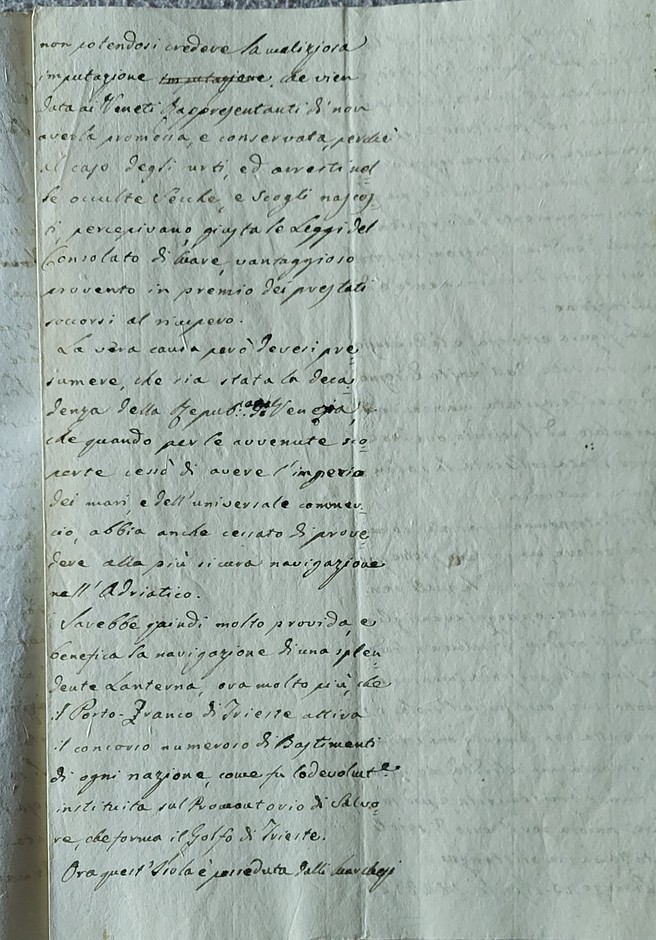 non potendosi credere la maliziosa
imputazione imputazione, che vien
data ai Veneti Rappresentanti di non
averla promossa, e conservata, perchè
al caso degli urti, ed arresti nel
le occulte Secche, e Scogli nascos
ti, percepivano, giusta le Leggi del
Consolato di Mare, vantaggioso
provento in premio dei prestati
soccorsi al ricupero.
La vera causa però devesi pre
sumere, che sia stata la deca
denza della Repub.
che quando per le avvenute sco
perte cessò di avere l'imperio
dei mari, e dell'universale commer
cio, abbia anche cessato di prove
dere alla più sicura navigazione
nell'Adriatico.
Sarebbe quindi molto provida, e
benefica la navigazione di una splen
dente Lanterna, ora molto più, che
il Porto-Franco di Trieste attiva
il concorso numeroso di Bastimenti
di ogni nazione, come fu lodevolmte
instituita sul Promontorio di Salvo
re, che forma il Golfo di Trieste.
Ora quest'Isola è posseduta dalli Marchesi